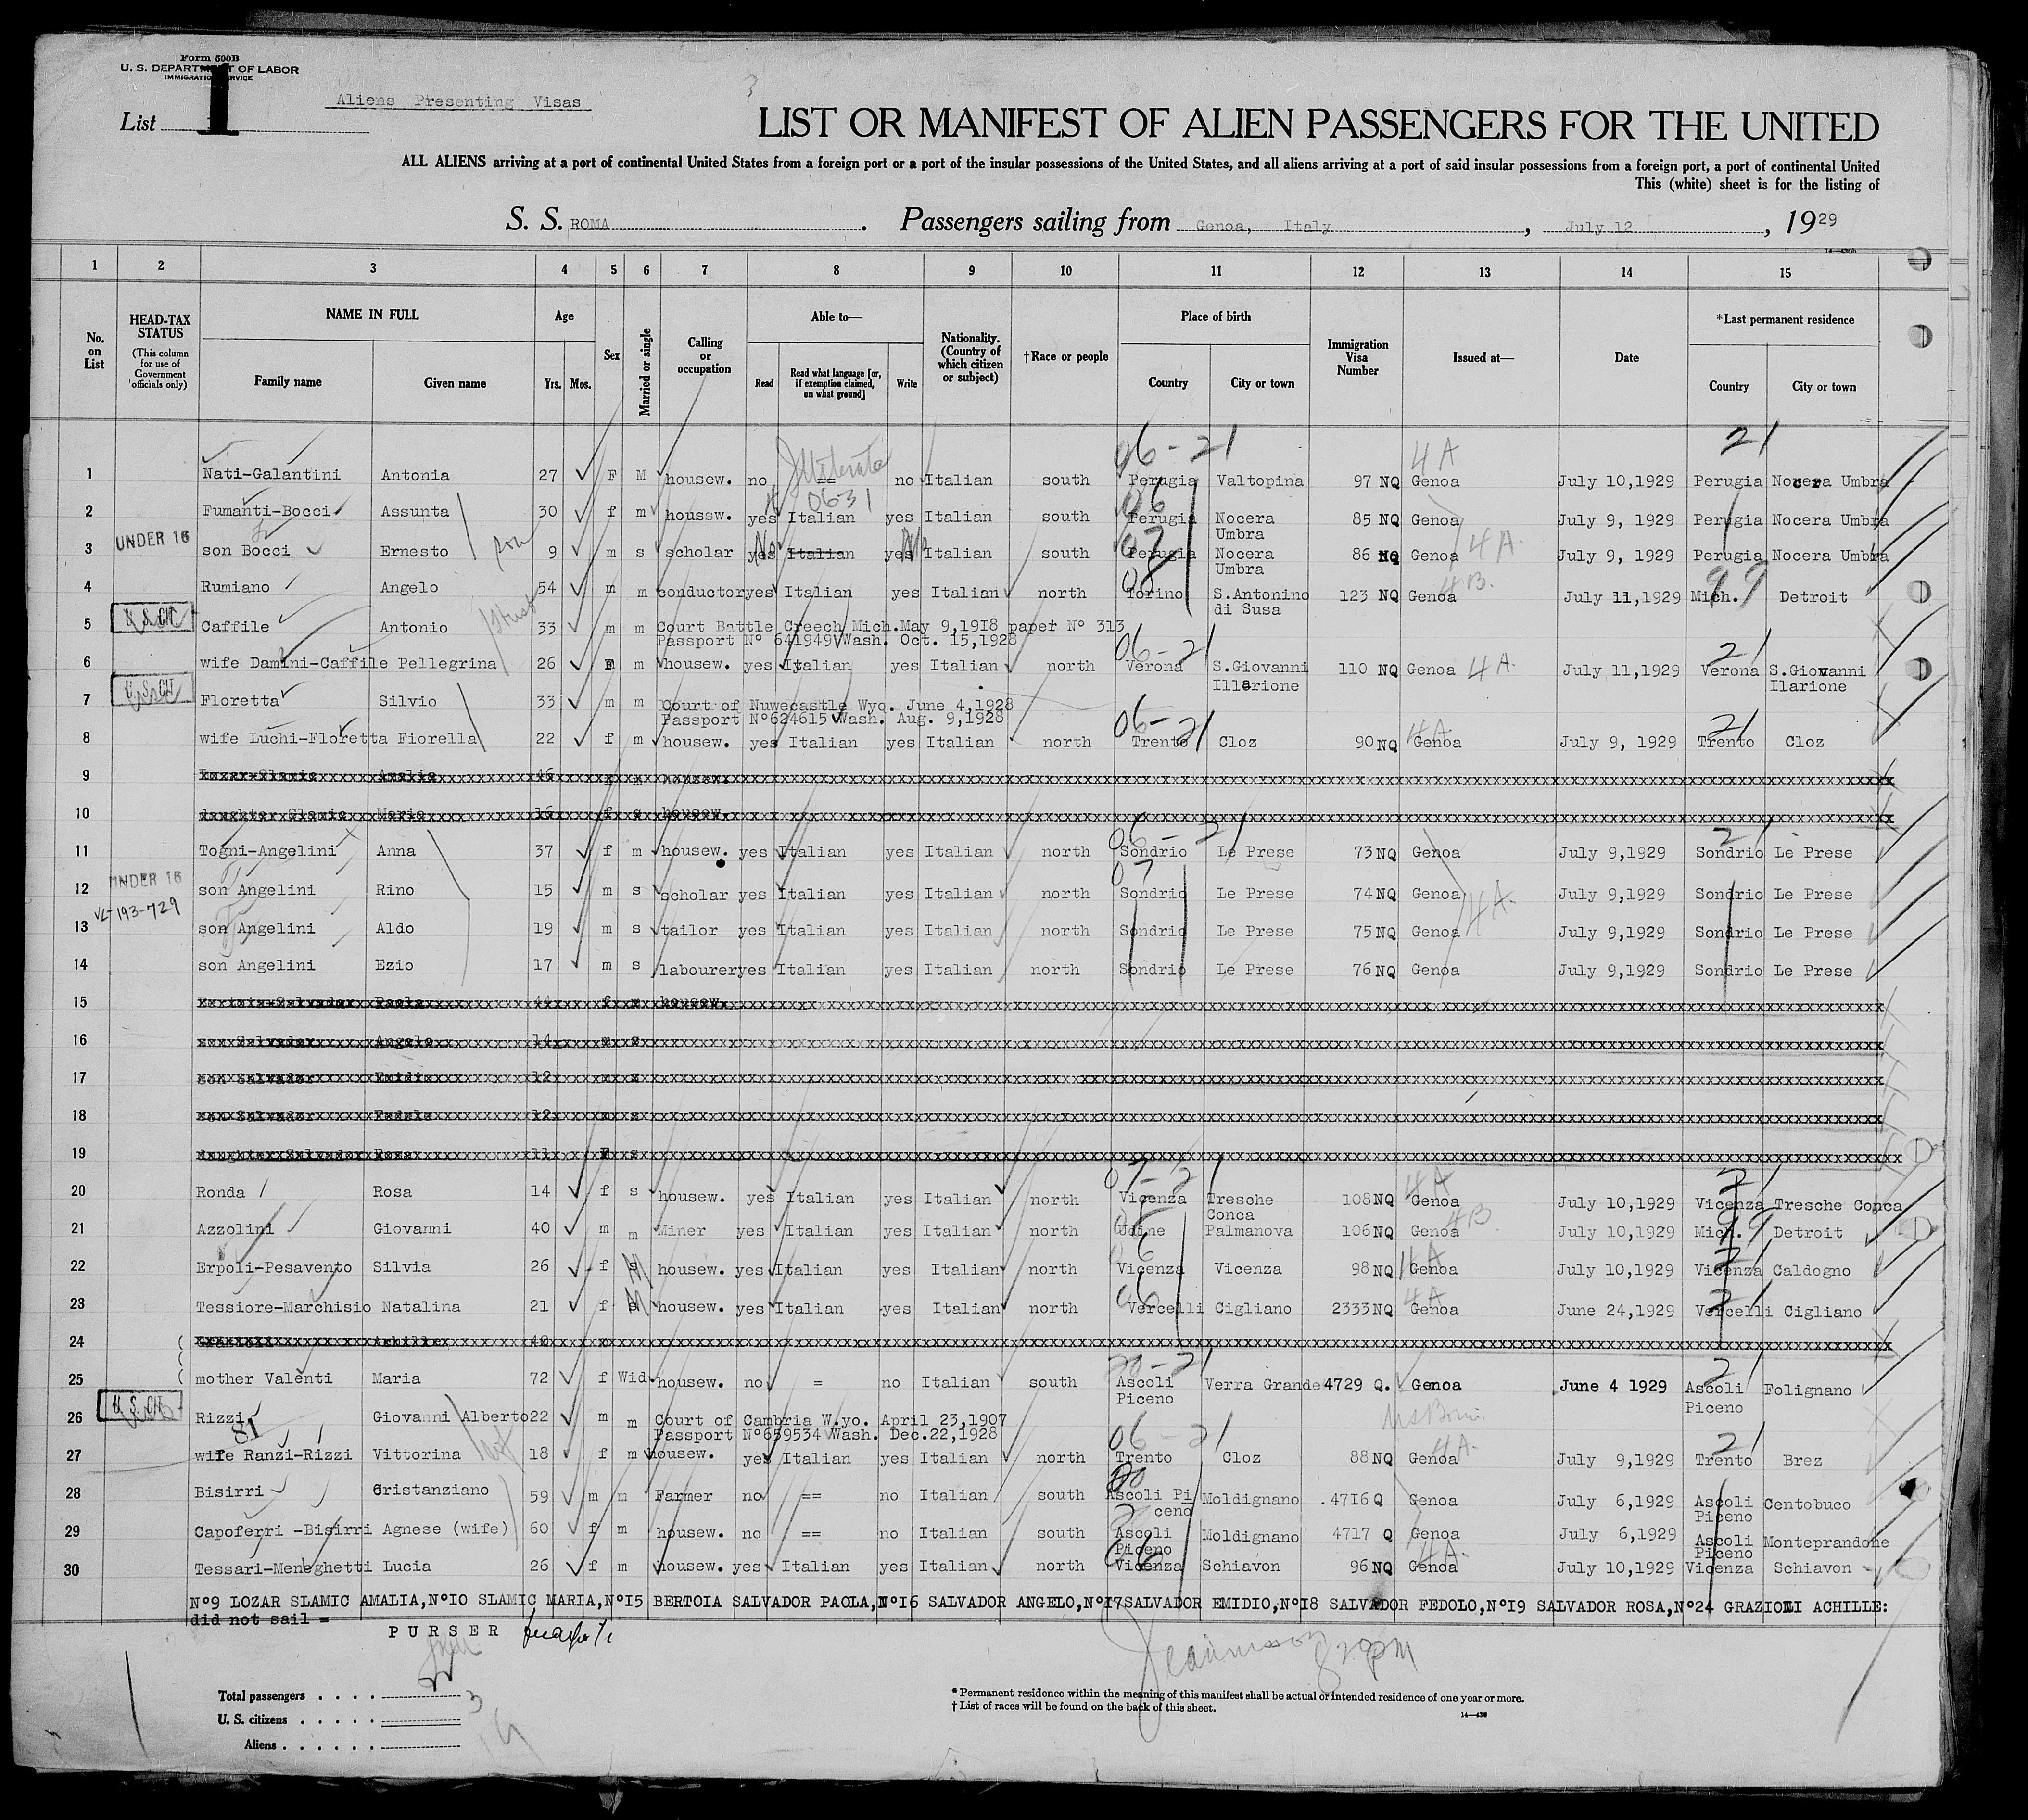 Form 500B
U. S. DEPARTMENT OF LABOR
IMMIGRATION SERVICE
Aliens Presenting Visas
List 1
LIST OR MANIFEST OF ALIEN PASSENGERS FOR THE UNITED
ALL ALIENS arriving at a port of continental United States from a foreign port or a port of the insular possessions of the United States, and all aliens arriving at a port of said insular possessions from a foreign port, a port of continental United
This (white) sheet is for the listing of
S. S. ROMA. Passengers sailing from Genoa, Italy, July 12, 1929
14—430b
1 2 3 4 5 6 7 8 9 10 11 12 13 14 15
No. on List
HEAD-TAX STATUS (This column for use of Government officials only)
NAME IN FULL Family name Given name
Age Yrs. Mos.
Sex
Married or single
Calling or occupation
Able to— Read Read what language [or, if exemption claimed, on what ground] Write
Nationality. (Country of which citizen or subject)
†Race or people
Place of birth Country City or town
Immigration Visa Number
Issued at—
Date
*Last permanent residence Country City or town
06-21 4A 21
1 Nati-Galantini Antonia 27 F M housew. no Illiterate == no Italian south Perugia Valtopina 97 NQ Genoa July 10,1929 Perugia Nocera Umbra
0631 06
2 Fumanti-Bocci Assunta 30 f m houssw. yes Italian yes Italian south Perugia Nocera Umbra 85 NQ Genoa July 9, 1929 Perugia Nocera Umbra
UNDER 16
3 son Bocci Ernesto 9 m s scholar yes No Italian yes Italian south Perugia Nocera Umbra 86 NQ Genoa 4A. July 9, 1929 Perugia Nocera Umbra
4 Rumiano Angelo 54 m m conductor yes Italian yes Italian north Torino S.Antonino di Susa 123 NQ Genoa 4B. July 11,1929 Mich. 99 Detroit
U. S. CIT
5 Caffile Antonio 33 m m Court Battle Creech Mich.May 9,1918 paper Nº 313
Passport Nº 641949 Wash. Oct. 15,1928
06-21 21
6 wife Damini-Caffile Pellegrina 26 F m housew. yes Italian yes Italian north Verona S.Giovanni Illarione 110 NQ Genoa 4A. July 11,1929 Verona S.Giovanni Ilarione
U. S. CIT
7 Floretta Silvio 33 m m Court of Nuwecastle Wyo. June 4,1928
Passport Nº624615 Wash. Aug. 9,1928
06-21 4A 21
8 wife Luchi-Floretta Fiorella 22 f m housew. yes Italian yes Italian north Trento Cloz 90 NQ Genoa July 9, 1929 Trento Cloz
9 Lozar-Slamic Amalia 46 f m housew.
10 daughter Slamic Maria 16 f s housew.
06-21 21
11 Togni-Angelini Anna 37 f m housew. yes Italian yes Italian north Sondrio Le Prese 73 NQ Genoa July 9,1929 Sondrio Le Prese
UNDER 16 07
12 son Angelini Rino 15 m s scholar yes Italian yes Italian north Sondrio Le Prese 74 NQ Genoa 4A. July 9,1929 Sondrio Le Prese
193-729
13 son Angelini Aldo 19 m s tailor yes Italian yes Italian north Sondrio Le Prese 75 NQ Genoa July 9,1929 Sondrio Le Prese
14 son Angelini Ezio 17 m s labourer yes Italian yes Italian north Sondrio Le Prese 76 NQ Genoa July 9,1929 Sondrio Le Prese
15 Salvador Paola 44 f m housew.
16 son Salvador Angelo 14 m s
17 son Salvador Emidio 12 m s
18 son Salvador Fedele 12 m s
19 daughter Salvador Rosa 11 F s
07-21 4A 21
20 Ronda Rosa 14 f s housew. yes Italian yes Italian north Vicenza Tresche Conca 108 NQ Genoa July 10,1929 Vicenza Tresche Conca
21 Azzolini Giovanni 40 m m Miner yes Italian yes Italian north Udine Palmanova 106 NQ Genoa 4B July 10,1929 Mich. 99 Detroit
22 Erpoli-Pesavento Silvia 26 f s M housew. yes Italian yes Italian north Vicenza Vicenza 98 NQ Genoa 4A July 10,1929 Vicenza Caldogno
23 Tessiore-Marchisio Natalina 21 f s M housew. yes Italian yes Italian north Vercelli Cigliano 2333 NQ Genoa 4A June 24,1929 Vercelli Cigliano
24 Grazioli Achille 40 m
20-21 21
25 mother Valenti Maria 72 f Wid housew. no = no Italian south Ascoli Piceno Verra Grande 4729 Q. Genoa June 4 1929 Ascoli Piceno Folignano
U. S. CIT
26 Rizzi Giovanni Alberto 22 m m Court of Cambria W.yo. April 23,1907
Passport Nº659534 Wash. Dec.22,1928
81 06-21 4A. 21
27 wife Ranzi-Rizzi Vittorina 18 f m housew. yes Italian yes Italian north Trento Cloz 88 NQ Genoa July 9,1929 Trento Brez
28 Bisirri Cristanziano 59 m m Farmer no == no Italian south Ascoli Piceno Moldignano .4716 Q Genoa July 6,1929 Ascoli Piceno Centobuco
29 Capoferri -Bisirri Agnese (wife) 60 f m housew. no == no Italian south Ascoli Piceno Moldignano 4717 Q Genoa July 6,1929 Ascoli Piceno Monteprandone
30 Tessari-Meneghetti Lucia 26 f m housew. yes Italian yes Italian north Vicenza Schiavon 96 NQ Genoa 4A. July 10,1929 Vicenza Schiavon
Nº9 LOZAR SLAMIC AMALIA,Nº10 SLAMIC MARIA,Nº15 BERTOIA SALVADOR PAOLA,Nº16 SALVADOR ANGELO,Nº17SALVADOR EMIDIO,Nº18 SALVADOR FEDOLO,Nº19 SALVADOR ROSA,Nº24 GRAZIOLI ACHILLE:
did not sail =
PURSER
Total passengers
U. S. citizens 3
Aliens
* Permanent residence within the meaning of this manifest shall be actual or intended residence of one year or more.
† List of races will be found on the back of this sheet.
14—430